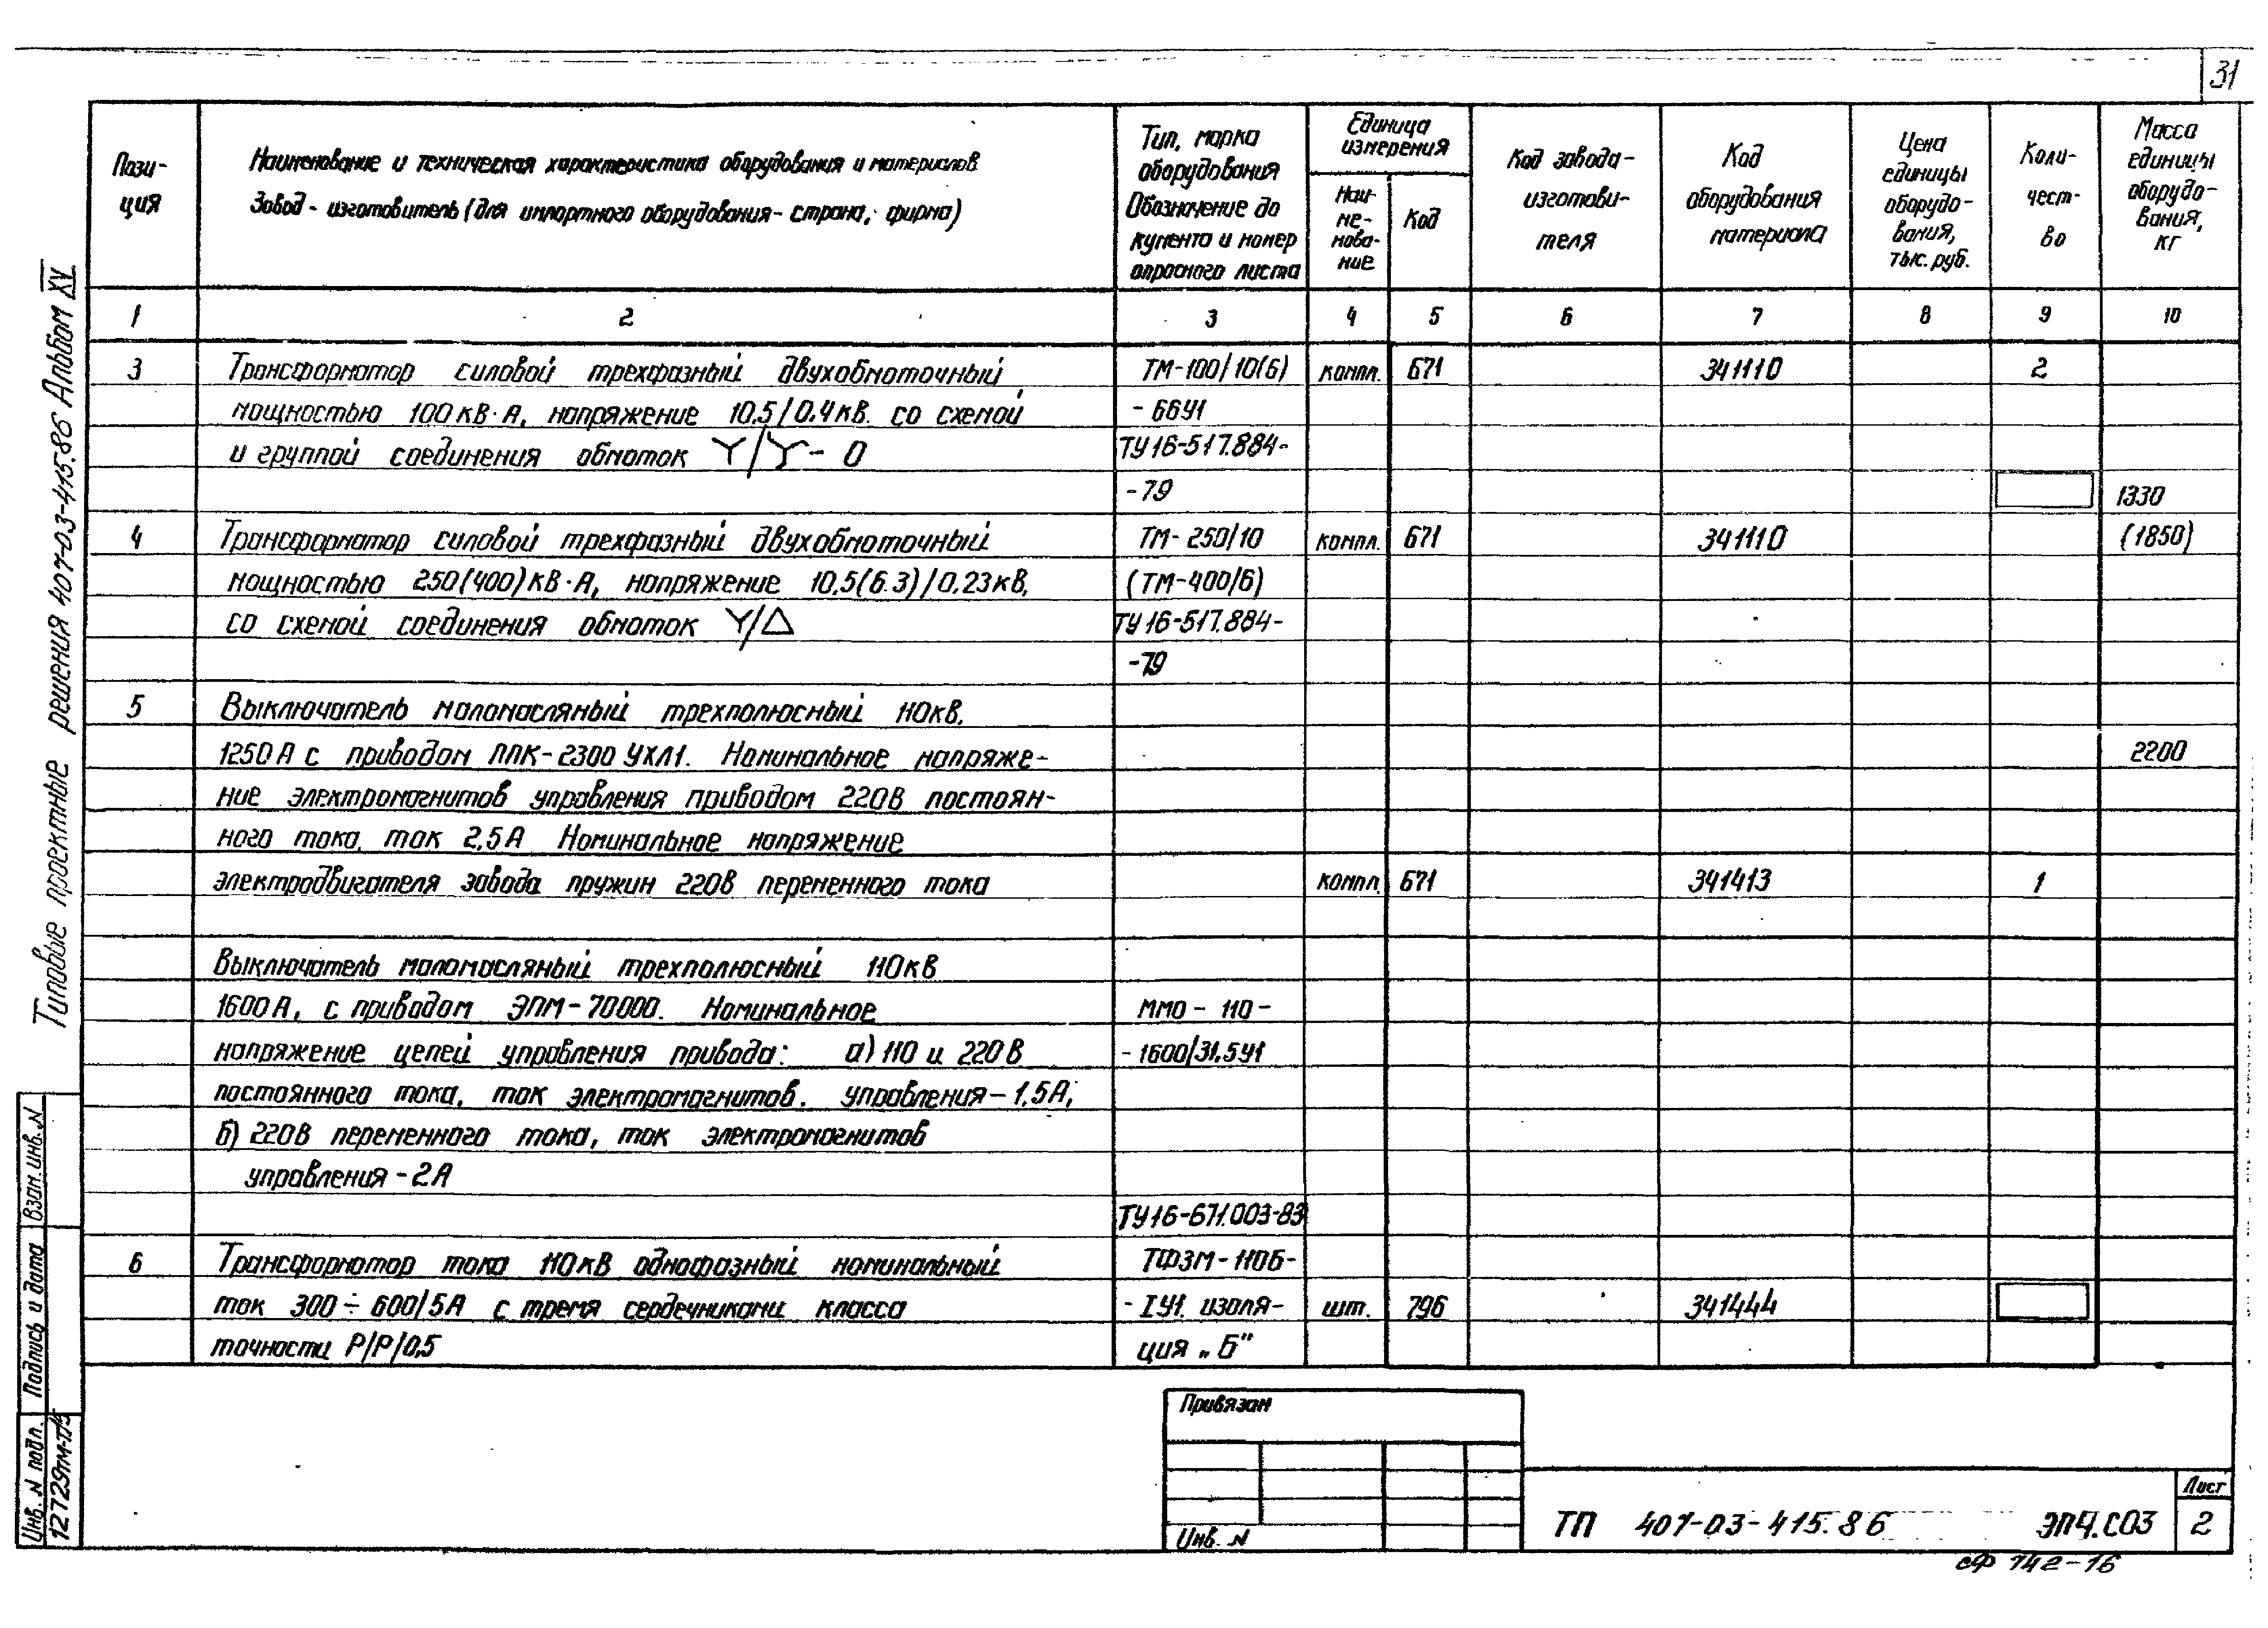 31
Пози-
ция
Наименование и техническая характеристика оборудования и материалов
Завод-изготовитель (для импортного оборудования-страна, фирма)
Тип, марка
оборудования
Обозначение до
кумента и номер
опросного листа
Единица
измерения
Наи-
ме-
нова-
ние
Код
Код завода-
изготови-
теля
Код
оборудования
материала
Цена
единицы
оборудо-
вания,
тыс. руб.
Коли-
чест-
во
Масса
единицы
оборудо-
вания,
кг
1 2 3 4 5 6 7 8 9 10
3 Трансформатор силовой трехфазный двухобмоточный ТМ-100/10(6) компл. 671 341110 2
мощностью 100кВ·А, напряжение 10,5/0,4кВ. со схемой -66У1
и группой соединения обмоток Y/Y-0 ТУ16-517.884-
-79 1330
4 Трансформатор силовой трехфазный двухобмоточный ТМ-250/10 компл. 671 341110 (1850)
мощностью 250(400)кВ·А, напряжение 10,5(6.3)/0,23кВ, (ТМ-400/6)
со схемой соединения обмоток Y/Δ ТУ16-517.884-
-79
5 Выключатель маломасляный трехполюсный 110кВ,
1250А с приводом ППК-2300 УХЛ1. Номинальное напряже- 2200
ние электромагнитов управления приводом 220В постоян-
ного тока, ток 2,5А Номинальное напряжение
электродвигателя завода пружин 220В переменного тока компл. 671 341413 1
Выключатель маломасляный трехполюсный 110кВ
1600А, с приводом ЭПМ-70000. Номинальное ММО-110-
напряжение цепей управления привода: а) 110 и 220В -1600/31,5У1
постоянного тока, ток электромагнитов. управления-1,5А;
б) 220В переменного тока, ток электромагнитов
управления-2А
ТУ16-671.003-83
6 Трансформатор тока 110кВ однофазный номинальный ТФЗМ-110Б-
ток 300÷600/5А с тремя сердечниками класса -IУ1. изоля- шт. 796 341444
точности Р/Р/0,5 ция „Б"
Типовые проектные решения 407-03-415.86 Альбом XV
Взам. инв. N
Подпись и дата
Инв. N подл.
12729тм-т15
Привязан
Инв. N
ТП 407-03-415.86 ЭП4.С03
Лист
2
сф 742-16